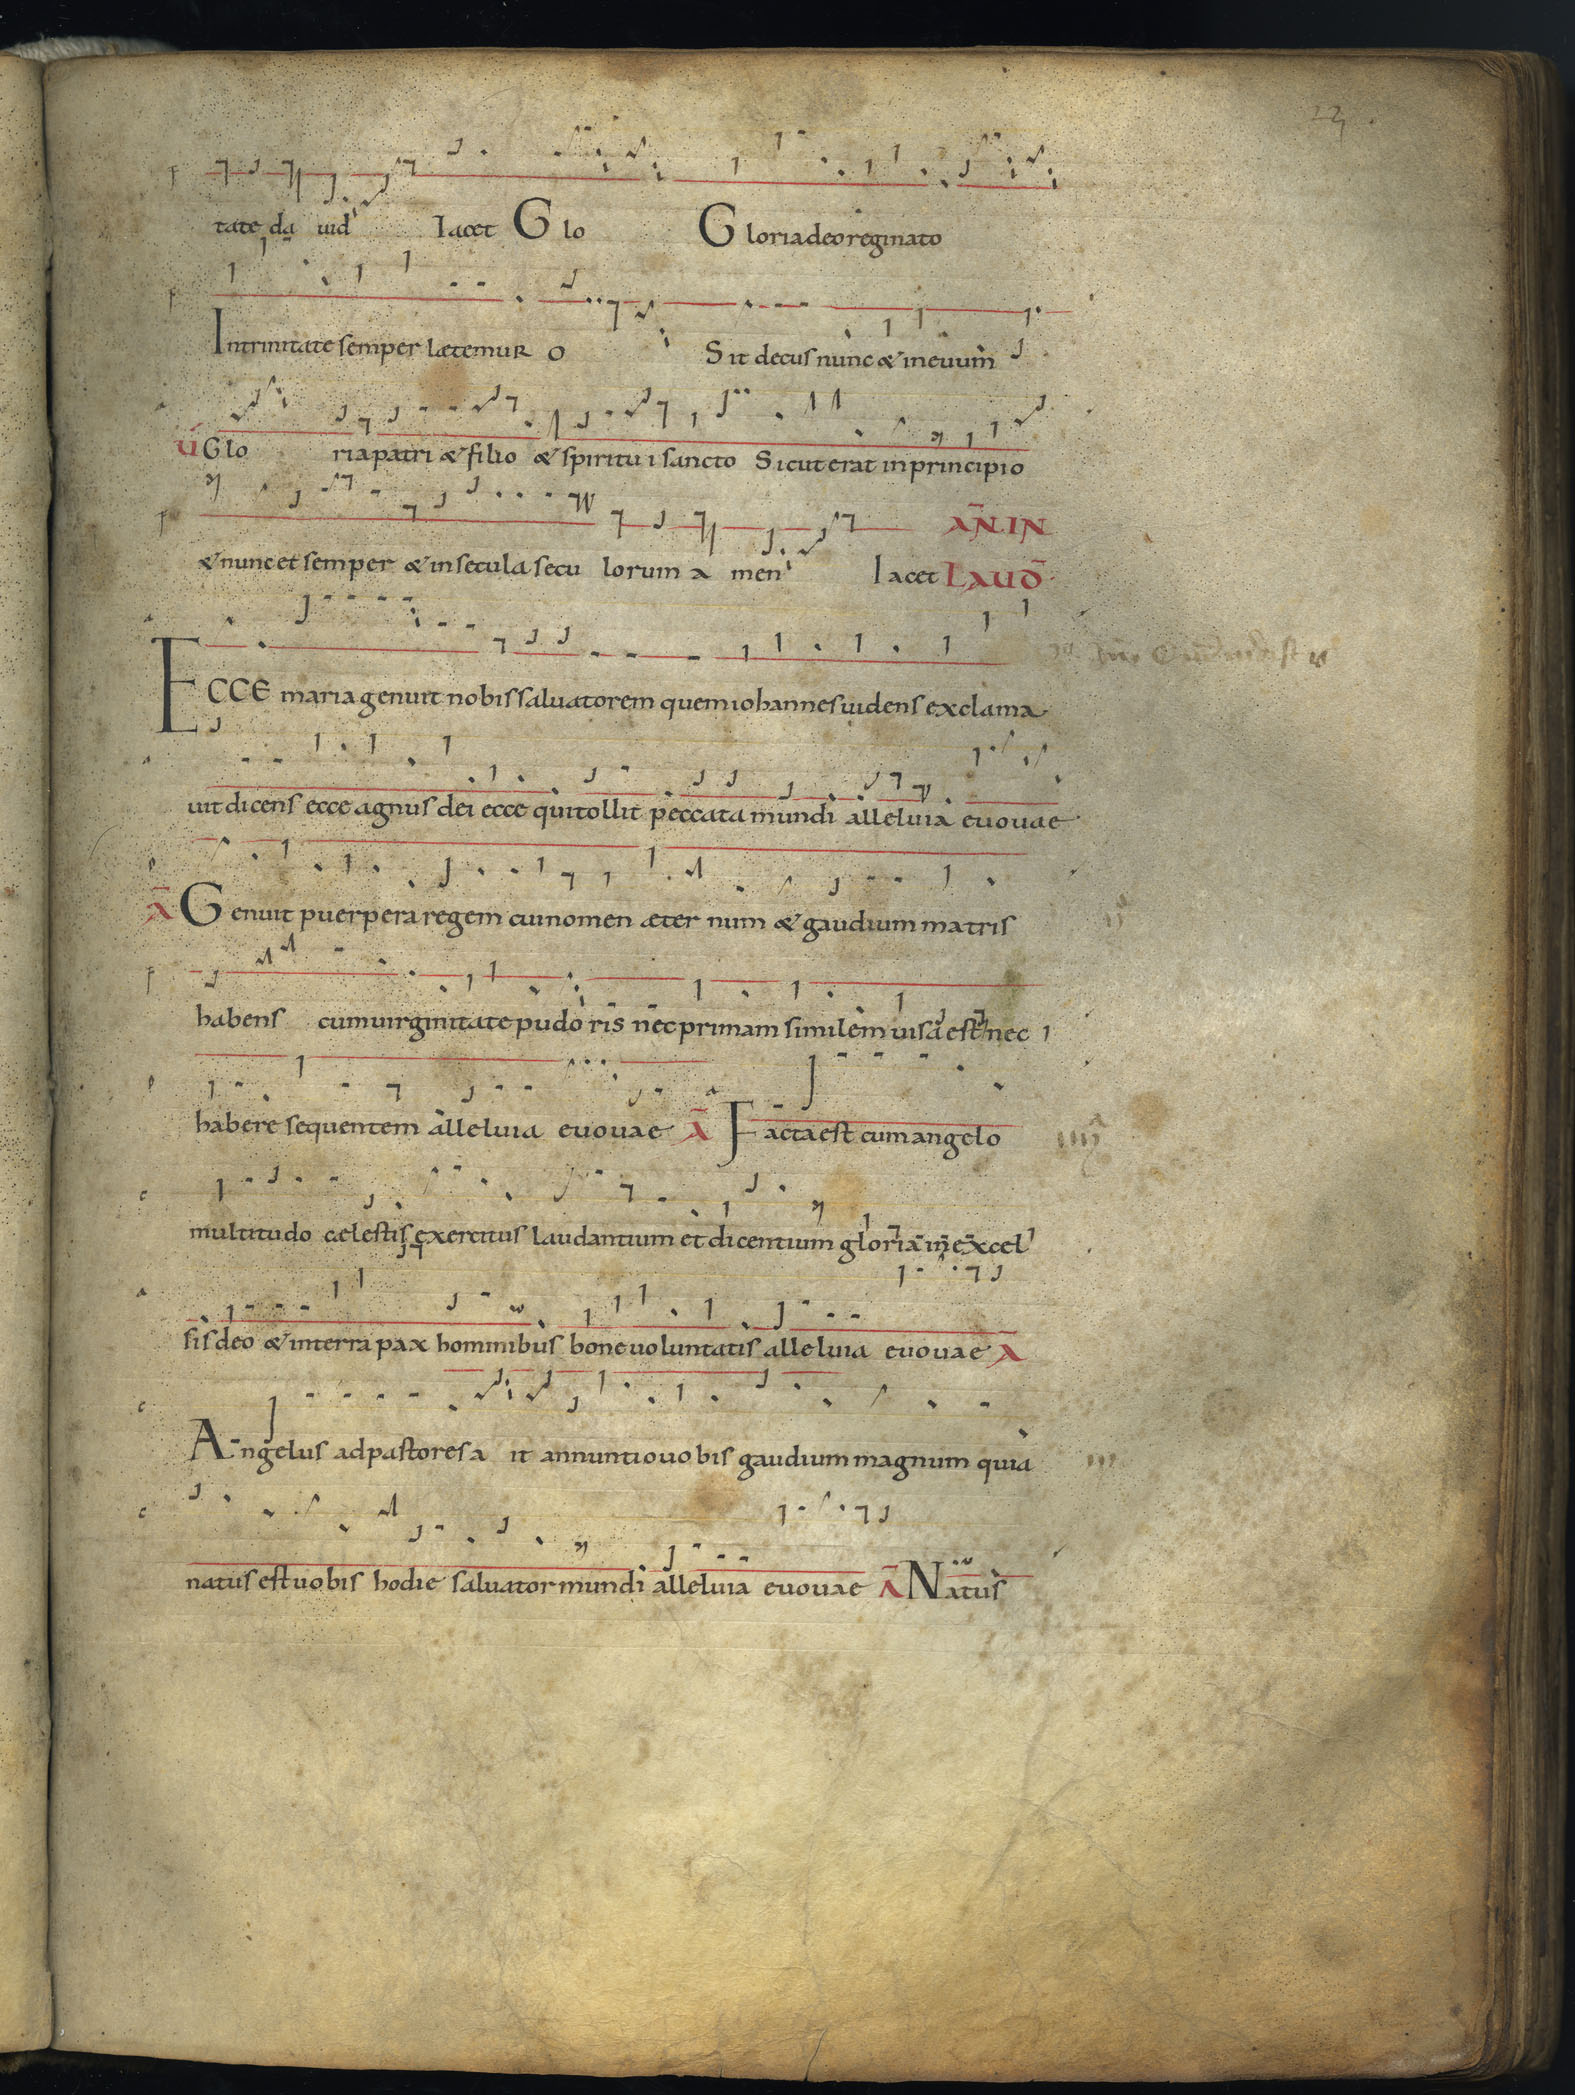 23
tate da uid Iacet Glo Gloria deo reginato
In trinitate semper lætemur o Sit decus nunc & in euum
V̄ Glo ria patri & filio & spiritu i sancto Sicut erat in principio
& nunc et semper & in secula secu lorum a men Iacet
AÑ. IN LAUD̄
ECCE maria genuit nobis saluatorem quem iohannes uidens exclama
uit dicens ecce agnus dei ecce qui tollit peccata mundi alleluia euouae
Ā Genuit puerpera regem cui nomen æter num & gaudium matris
habens cum uirginitate pudoris nec primam similem uisa est nec
habere sequentem alleluia euouae Ā Facta est cum angelo
multitudo cælestis exercitus laudantium et dicentium gloria in excel
sis deo & in terra pax hominibus bone uoluntatis alleluia euouae Ā
Angelus ad pastores a it annuntio uobis gaudium magnum quia
natus est uobis hodie saluator mundi alleluia euouae Ā Natus